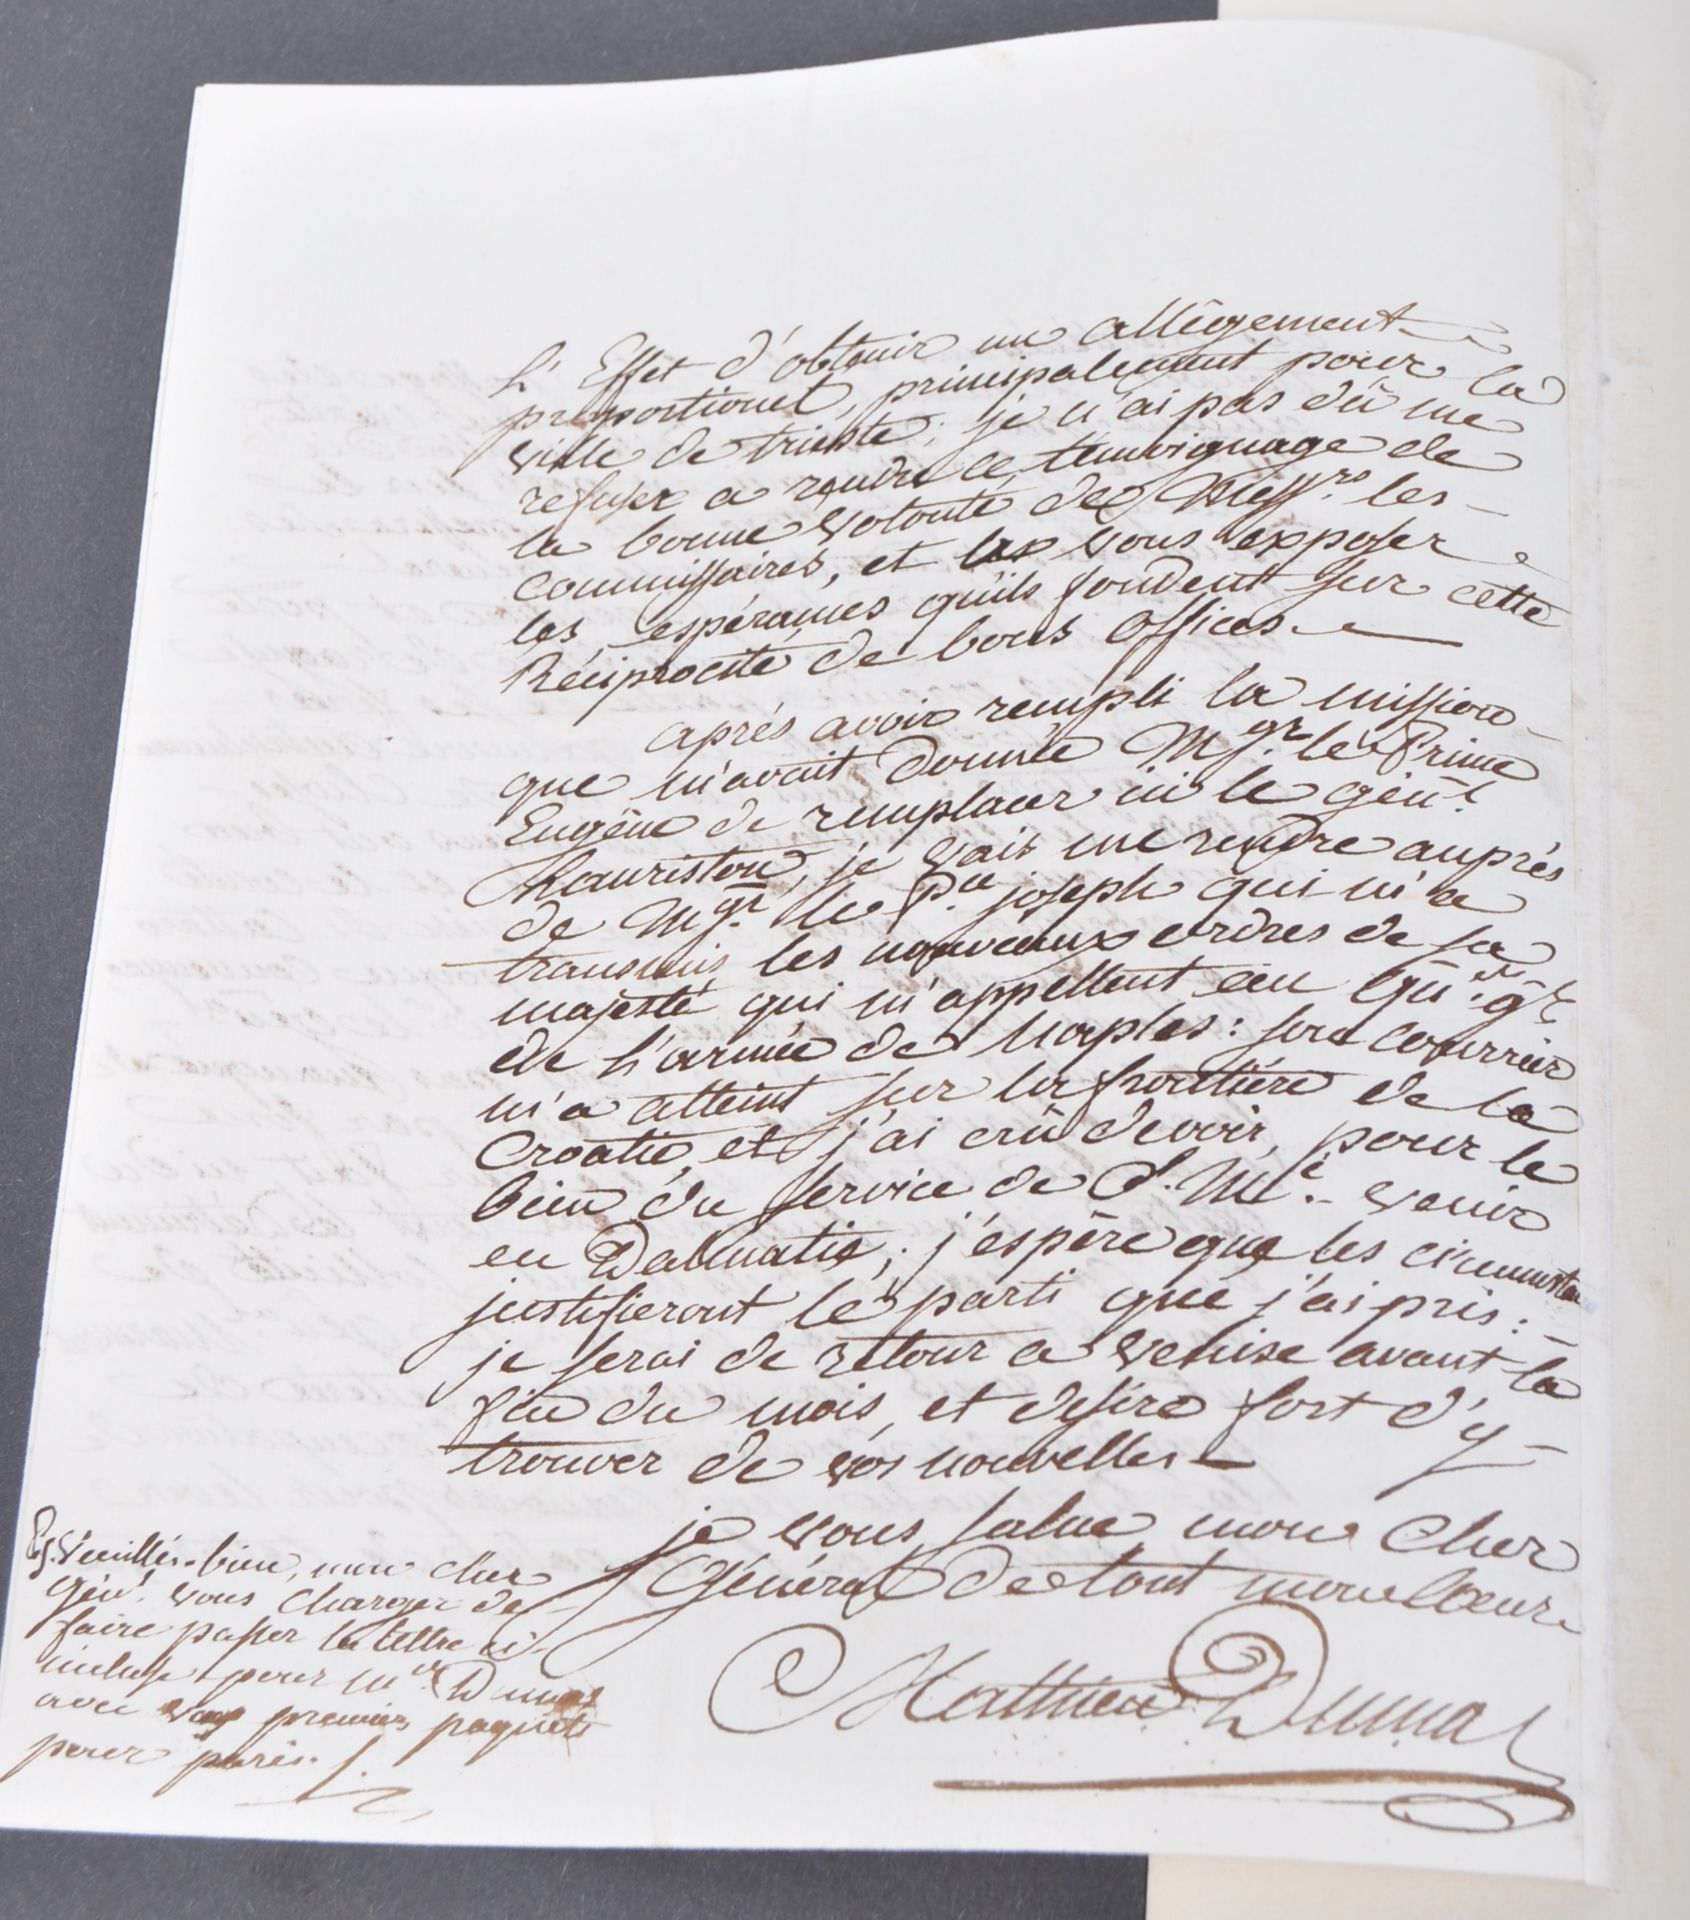 L'Effet d'obtenir un allégement
proportionel, principalement pour la
ville de trieste; je n'ai pas dû me
refuser a rendre ce témoignage de
la bonne volonté de Mess.rs les
commissaires, et vous exposer
les espérances qu'ils fondent sur cette
Réciprocité de bons offices.
après avoir rempli la mission
que m'avait donnée Mgr. le Prince
Eugéne de remplacer ici le gén.l
Lauriston, je vais me rendre auprès
de Mgr. le P.ce joseph qui m'a
transmis les nouveaux ordres de sa
majesté qui m'appellent
de l'armée de Naples: son courrier
m'a atteint sur la frontière de la
Croatie, et j'ai crû devoir, pour le
bien du service de S. M.é venir
en Dalmatie; j'espère que les circonstan
justifieront le parti que j'ai pris:
je serai de retour a Venise avant la
fin du mois, et desire fort d'y
trouver de vos nouvelles
je vous salue mon cher
Général de tout mon Coeur
Mathieu Dumas
Ps. Veuillés-bien, mon cher
gén.l vous charger de
faire passer la lettre ci-
incluse pour M.e Dumas
avec vos premiers paquets
pour paris.